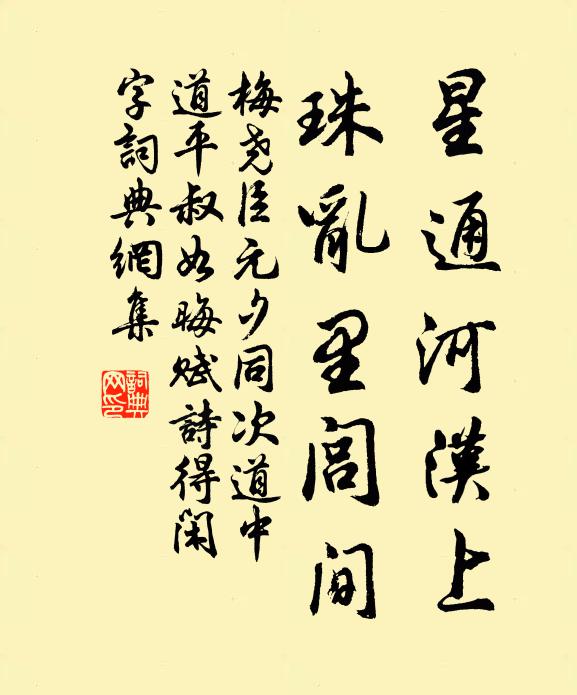 星通河漢上
珠亂里閭間
梅堯臣元夕同次道中
道平叔如晦賦詩得閑
字詞典網集
詞典
网印